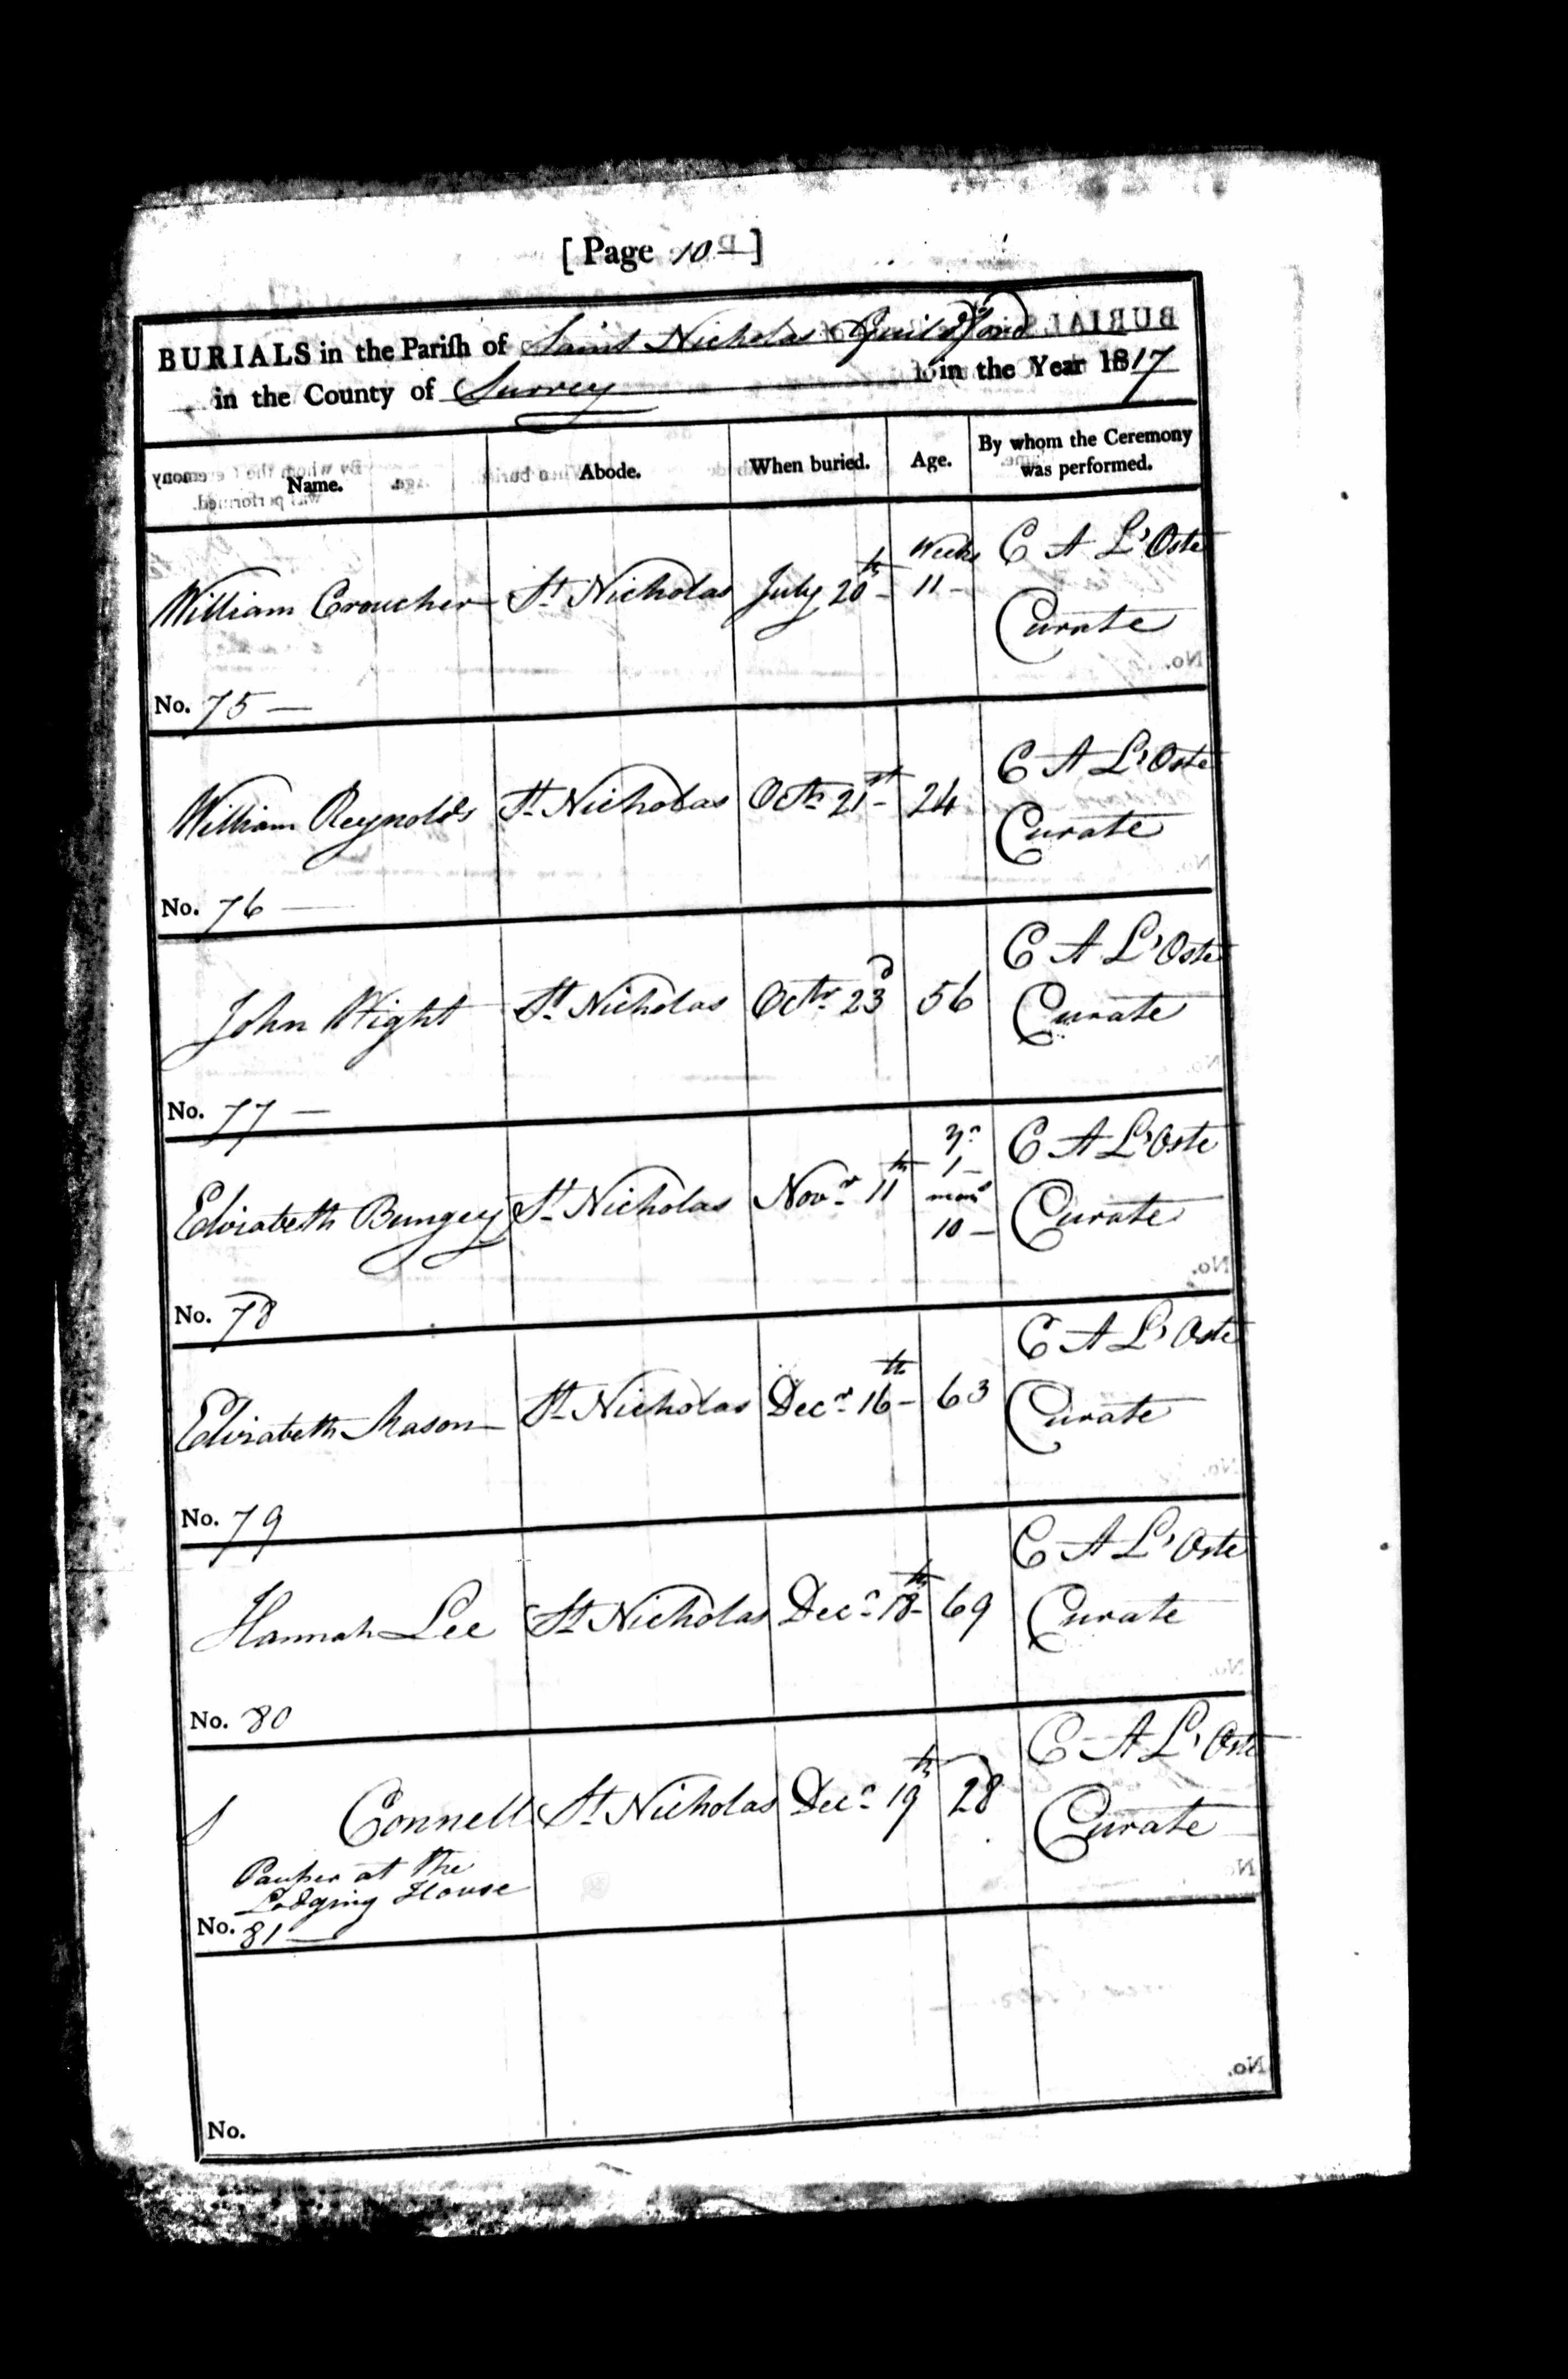 [ Page 10 ]
BURIALS in the Pariſh of Saint Nicholas Guildford
in the County of Surrey in the Year 1817
Name. Abode. When buried. Age. By whom the Ceremony was performed.
William Croucher St Nicholas July 20th Weeks 11 C A L'Oste Curate
No. 75
William Reynolds St Nicholas Octr 21st 24 C A L'Oste Curate
No. 76
John Wight St Nicholas Octr 23d 56 C A L'Oste Curate
No. 77
Elizabeth Bungey St Nicholas Novr 11th yr 1 mons 10 C A L'Oste Curate
No. 78
Elizabeth Mason St Nicholas Decr 16th 63 C A L'Oste Curate
No. 79
Hannah Lee St Nicholas Decr 18th 69 C A L'Oste Curate
No. 80
Connell St Nicholas Decr 19th 28 C A L'Oste Curate
Pauper at the
Lodging House
No. 81
No.